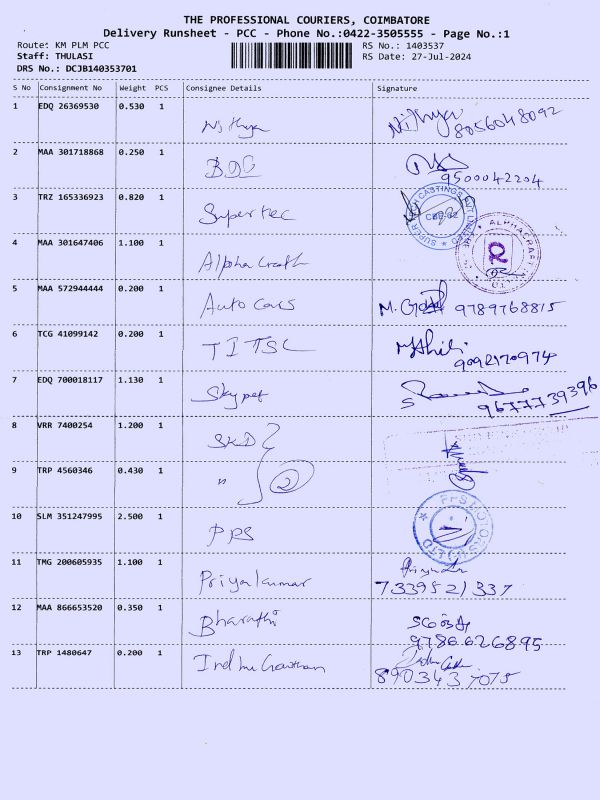 THE PROFESSIONAL COURIERS, COIMBATORE
Delivery Runsheet - PCC - Phone No.:0422-3505555 - Page No.:1
Route: KM PLM PCC RS No.: 1403537
Staff: THULASI RS Date: 27-Jul-2024
DRS No.: DCJB140353701
S No Consignment No Weight PCS Consignee Details Signature
1 EDQ 26369530 0.530 1 Nithya Nithya 8056048092
2 MAA 301718868 0.250 1 9500042204
3 TRZ 165336923 0.820 1 Supertec
4 MAA 301647406 1.100 1 Alpha Craft
5 MAA 572944444 0.200 1 Auto Cars M. 9789768815
6 TCG 41099142 0.200 1 9092170974
7 EDQ 700018117 1.130 1 9677739396
8 VRR 7400254 1.200 1 SKD
9 TRP 4560346 0.430 1 " 2
10 SLM 351247995 2.500 1 PPS
11 TMG 200605935 1.100 1 Priyakumar 7339521337
12 MAA 866653520 0.350 1 Bharathi 9786626895
13 TRP 1480647 0.200 1 Indhu Gowtham 8903437075